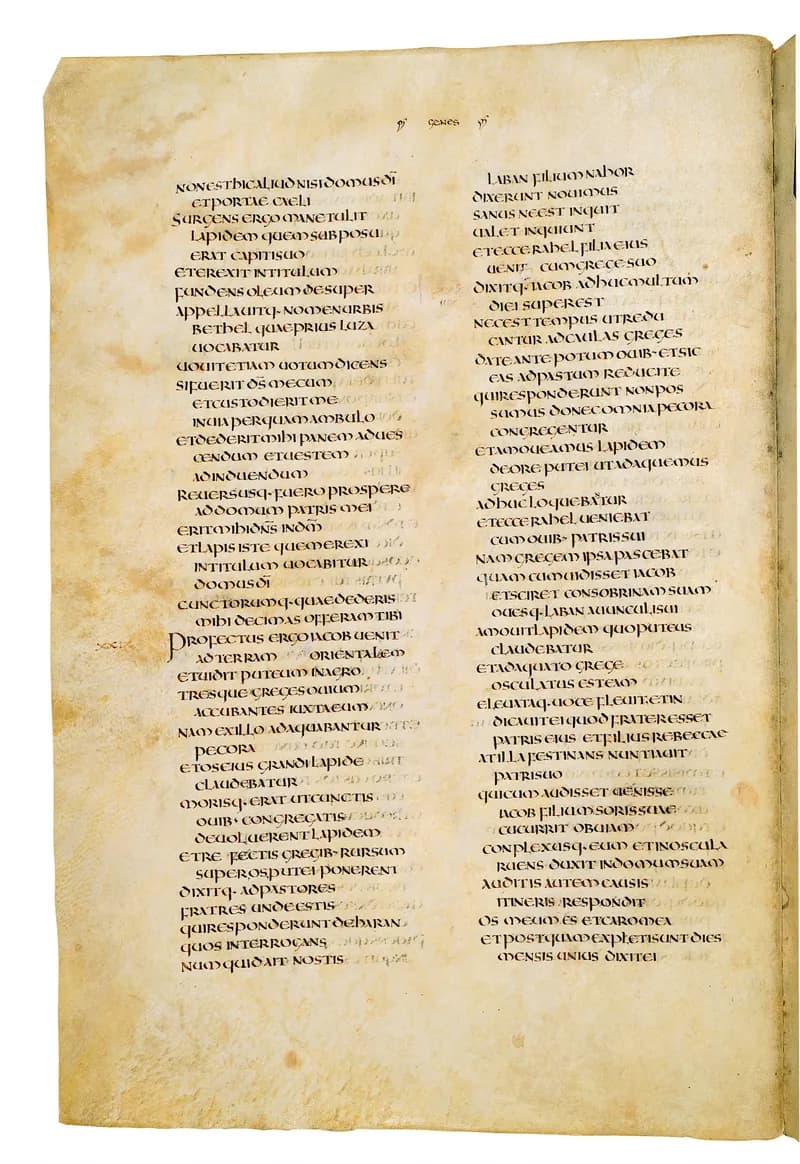 GENES
NON EST HIC ALIUD NISI DOMUS DĪ
ET PORTAE CAELI
SURGENS ERGO MANE TULIT
LAPIDEM QUEM SUBPOSU
ERAT CAPITI SUO
ET EREXIT IN TITULUM
FUNDENS OLEUM DESUPER
APPELLAUITQ· NOMEN URBIS
BETHEL QUAE PRIUS LUZA
UOCABATUR
UOUIT ETIAM UOTUM DICENS
SI FUERIT D̄S MECUM
ET CUSTODIERIT ME
IN UIA PER QUAM AMBULO
ET DEDERIT MIHI PANEM AD UES
CENDUM ET UESTEM
AD INDUENDUM
REUERSUSQ· FUERO PROSPERE
AD DOMUM PATRIS MEI
ERIT MIHI DN̄S IN DM̄
ET LAPIS ISTE QUEM EREXI
IN TITULUM UOCABITUR
DOMUS DĪ
CUNCTORUMQ· QUAE DEDERIS
MIHI DECIMAS OFFERAM TIBI
XXIX PROFECTUS ERGO IACOB UENIT
AD TERRAM ORIENTALEM
ET UIDIT PUTEUM IN AGRO
TRESQUE GREGES OUIUM
ACCUBANTES IUXTA EUM
NAM EX ILLO ADAQUABANTUR
PECORA
ET OS EIUS GRANDI LAPIDE
CLAUDEBATUR
MORISQ· ERAT UT CUNCTIS
OUIB· CONGREGATIS
DEUOLUERENT LAPIDEM
ET REFECTIS GREGIB· RURSUM
SUPER OS PUTEI PONERENT
DIXITQ· AD PASTORES
FRATRES UNDE ESTIS
QUI RESPONDERUNT DE HARAN
QUOS INTERROGANS
NUMQUID AIT NOSTIS
LABAN FILIUM NAHOR
DIXERUNT NOUIMUS
SANUS NE EST INQUIT
UALET INQUIUNT
ET ECCE RAHEL FILIA EIUS
UENIT CUM GREGE SUO
DIXITQ· IACOB ADHUC MULTUM
DIEI SUPEREST
NEC EST TEMPUS UT REDU
CANTUR AD CAULAS GREGES
DATE ANTE POTUM OUIB· ET SIC
EAS AD PASTUM REDUCITE
QUI RESPONDERUNT NON POS
SUMUS DONEC OMNIA PECORA
CONGREGENTUR
ET AMOUEAMUS LAPIDEM
DE ORE PUTEI UT ADAQUEMUS
GREGES
ADHUC LOQUEBATUR
ET ECCE RAHEL UENIEBAT
CUM OUIB· PATRIS SUI
NAM GREGEM IPSA PASCEBAT
QUAM CUM UIDISSET IACOB
ET SCIRET CONSOBRINAM SUAM
OUESQ· LABAN AUUNCULI SUI
AMOUIT LAPIDEM QUO PUTEUS
CLAUDEBATUR
ET ADAQUATO GREGE
OSCULATUS EST EAM
ELEUATAQ· UOCE FLEUIT ET IN
DICAUIT EI QUOD FRATER ESSET
PATRIS EIUS ET FILIUS REBECCAE
AT ILLA FESTINANS NUNTIAUIT
PATRI SUO
QUI CUM AUDISSET UENISSE
IACOB FILIUM SORIS SUAE
CUCURRIT OBUIAM
CONPLEXUSQ· EUM ET IN OSCULA
RUENS DUXIT IN DOMUM SUAM
AUDITIS AUTEM CAUSIS
ITINERIS RESPONDIT
OS MEUM ES ET CARO MEA
ET POSTQUAM EXPLETI SUNT DIES
MENSIS UNIUS DIXIT EI